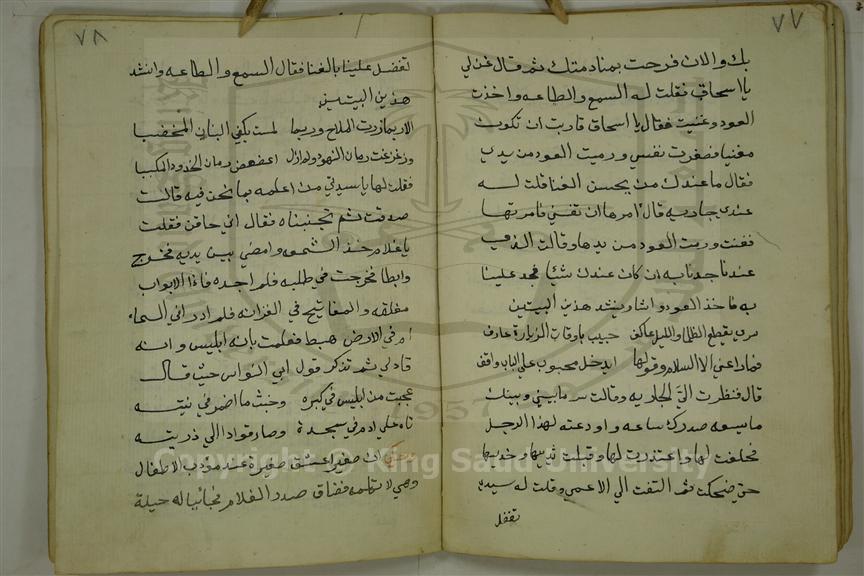 ٧٧
بك والان فرحت بمنادمتك ثم قال غن لي
يا اسحاق فقلت له السمع والطاعه واخذت
العود وغنيت فقال يا اسحاق قاربت ان تكون
مغنيا فصغرت نفسي ورميت العود من يدي
فقال ما عندك من يحسن الغنا قلت له
عندي جاريه قال امرها ان تغني فامرتها
فغنت ورمت العود من يدها وقالت الذي
عندنا جدنا به ان كان عندك شيا فجد علينا
به فاخذ العود وانشا وينشد هذين البيتين
سري يقطع الظلما والليل عاكف حبيب باوقات الزيارة عارف
فما راعني الا السلام وقولها ايدخل محبوب علي الباب واقف
قال فنظرت الي الجاريه وقالت سر ما بيني وبينك
ما يسعه صدرك ساعه واودعته لهذا الرجل
فحلفت لها واعتذرت لها وقبلت ثدييها وخديها
حتي ضحكت ثم التفت الي الاعمي وقلت له سيدي
تفضل
٧٨
تفضل علينا بالغنا فقال السمع والطاعه وانشد
هذين البيتين
الا ربما زرت الملاح وربما لمست بكفي البنان المخضبا
وزغزغت رمان النهود ولم ازل اعضعض رمان الخدود المكببا
فقلت لها يا سيدتي من اعلمه بما نحن فيه قالت
صدقت ثم تجنبناه فقال اني حاقن فقلت
يا غلام خذ الشمعه وامضي بين يديه فخرج
وابطا فخرجت في طلبه فلم اجده فاذا الابواب
مغلقه والمفاتيح في الخزانه فلم ادر افي السما
ام في الارض هبط فعلمت بانه ابليس وانه
قاد لي ثم تذكر قول ابي النواس حيث قال
عجبت من ابليس في كبره وخبث ما اضمر في نيته
تاه علي ادم في سجدة وصار قوادا الي ذريته
حكي ان صغيرا عشق صغيرة عند مؤدب الاطفال
وهي لا تكلمه فضاق صدر الغلام حيلة
1957
Copyright © King Saud University